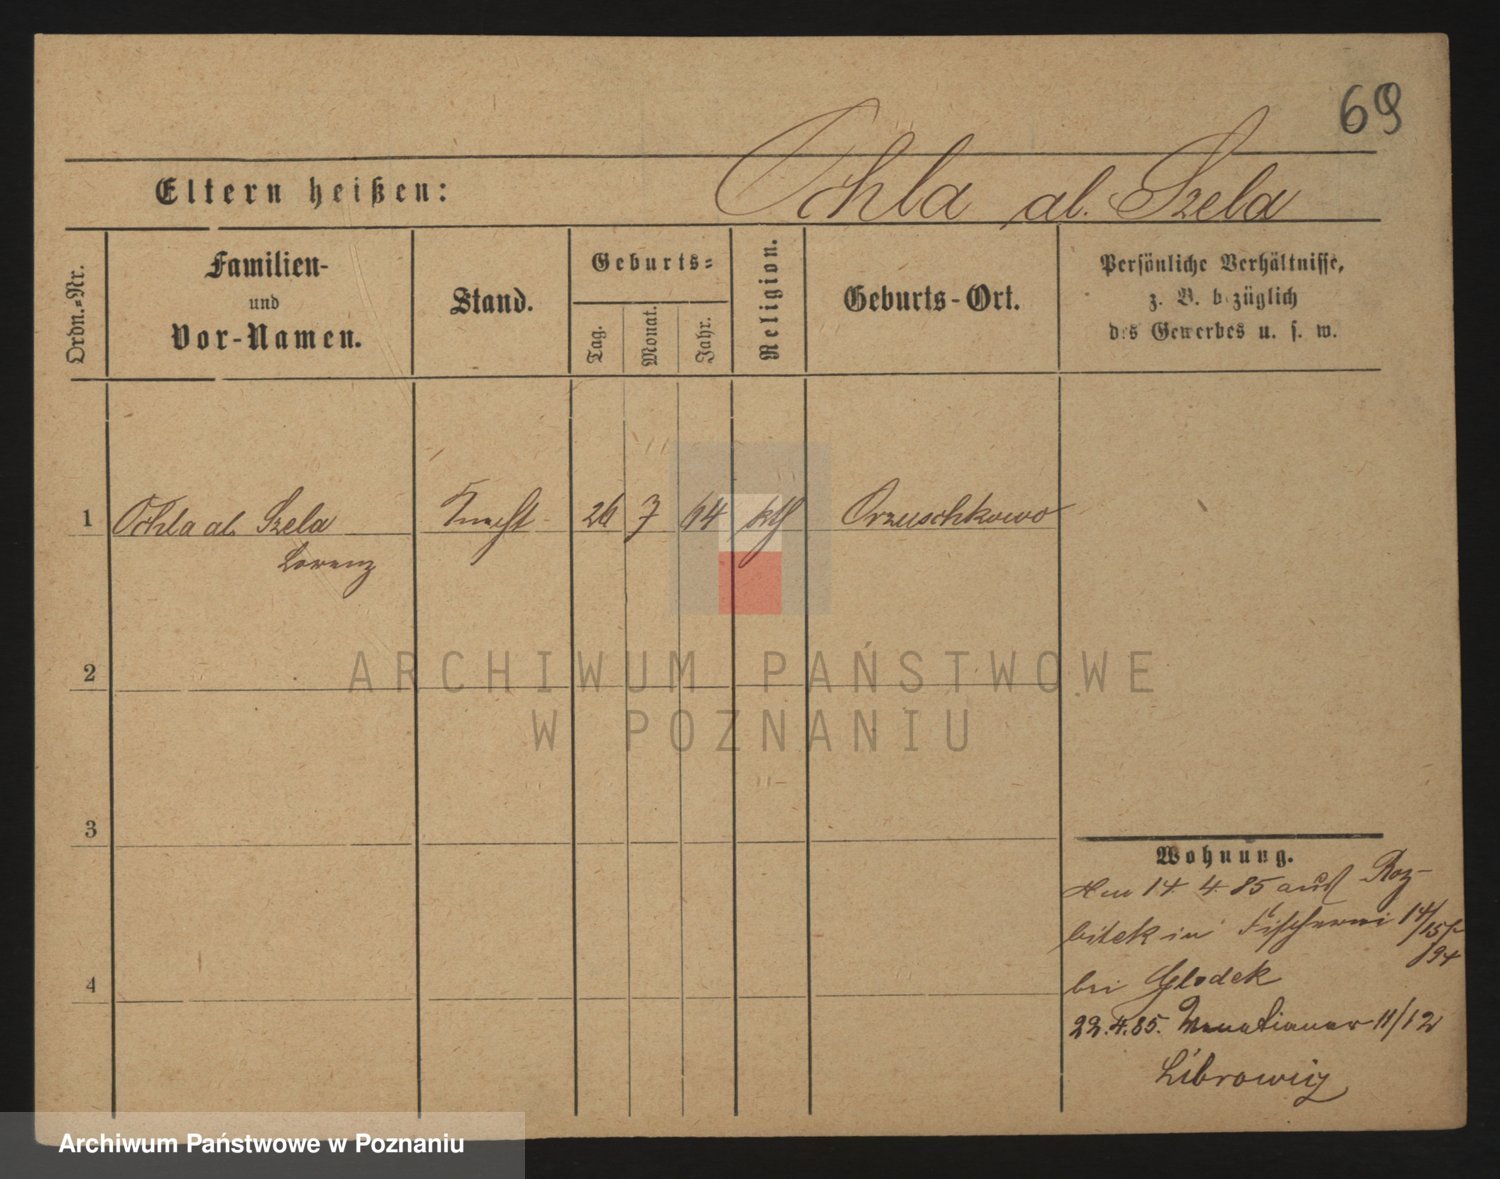 69
Eltern heißen: Ochla al. Szela
Ordn.-Nr.
Familien-
und
Vor-Namen.
Stand.
Geburts-
Tag.
Monat.
Jahr.
Religion.
Geburts-Ort.
Persönliche Verhältnisse,
z. B. bezüglich
des Gewerbes u. s. w.
1 Ochla al. Szela Knecht 26 7 64 kth Orzuschkowo
Lorenz
ARCHIWUM PAŃSTWOWE
W POZNANIU
2
3
4
Wohnung.
14. 4. 85 aus Roz-
bitek in Fischerei 14/15
bei Glodek
22.4.85. Venetianer 11/12
Librowicz
Archiwum Państwowe w Poznaniu